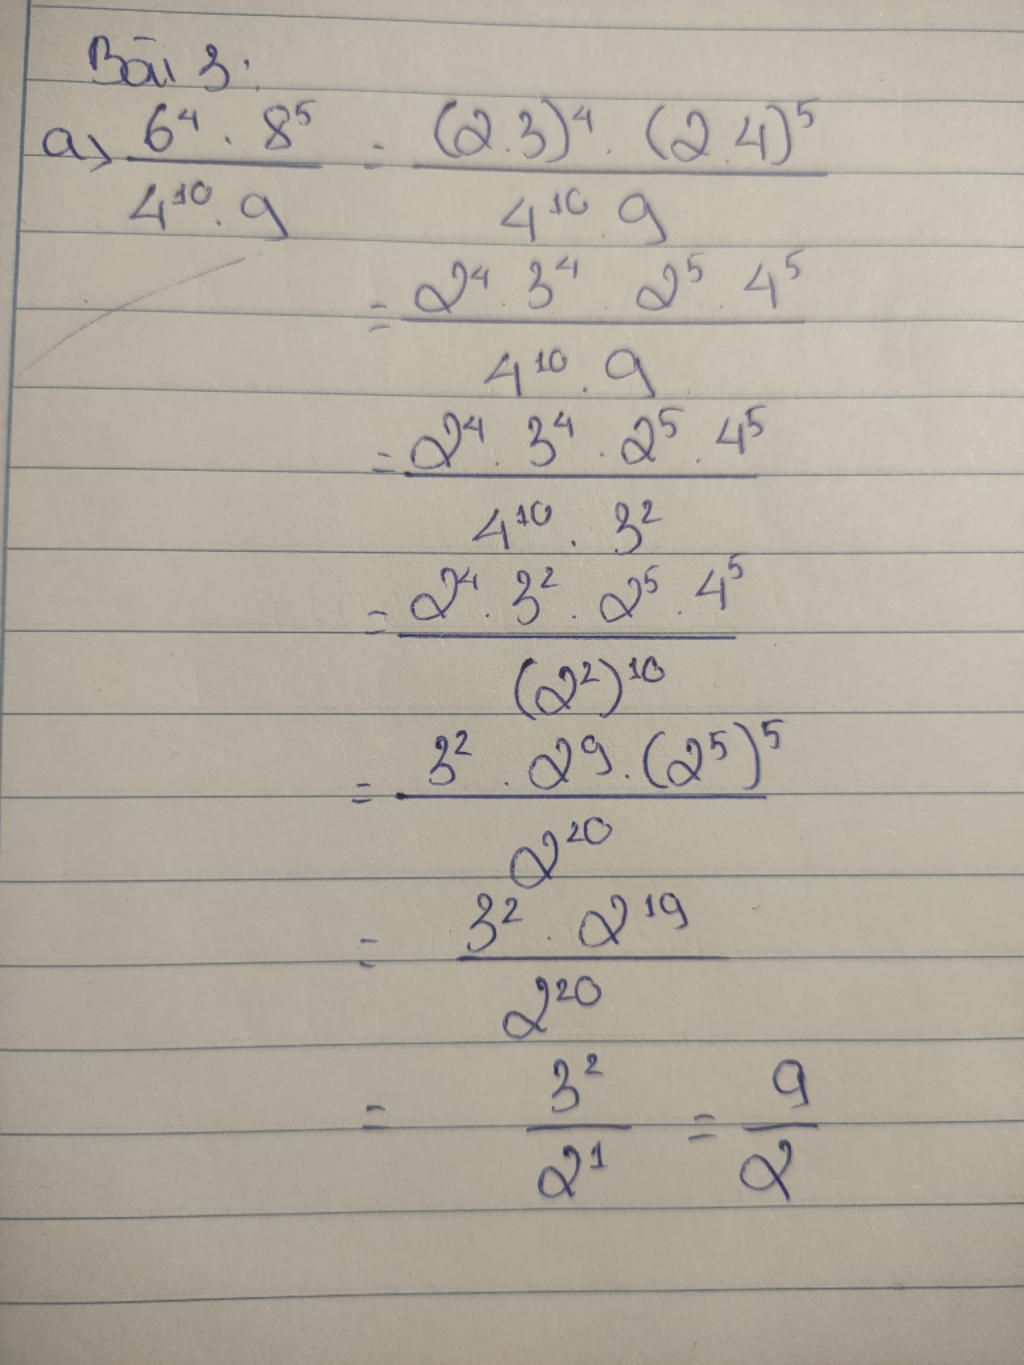 Bài 3:
a) \frac{6^4 . 8^5}{4^{10} . 9} = \frac{(2.3)^4 . (2.4)^5}{4^{10} . 9}
= \frac{2^4 . 3^4 . 2^5 . 4^5}{4^{10} . 9}
= \frac{2^4 . 3^4 . 2^5 . 4^5}{4^{10} . 3^2}
= \frac{2^4 . 3^2 . 2^5 . 4^5}{(2^2)^{10}}
= \frac{3^2 . 2^9 . (2^5)^5}{2^{20}}
= \frac{3^2 . 2^{19}}{2^{20}}
= \frac{3^2}{2^1} = \frac{9}{2}